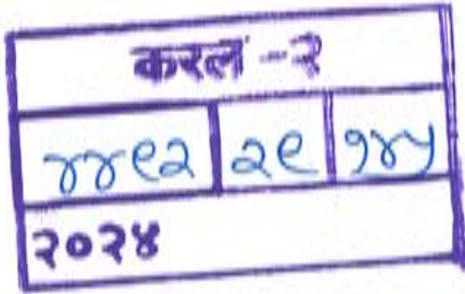 करल -२
४४९२ २९ १४५
२०२४